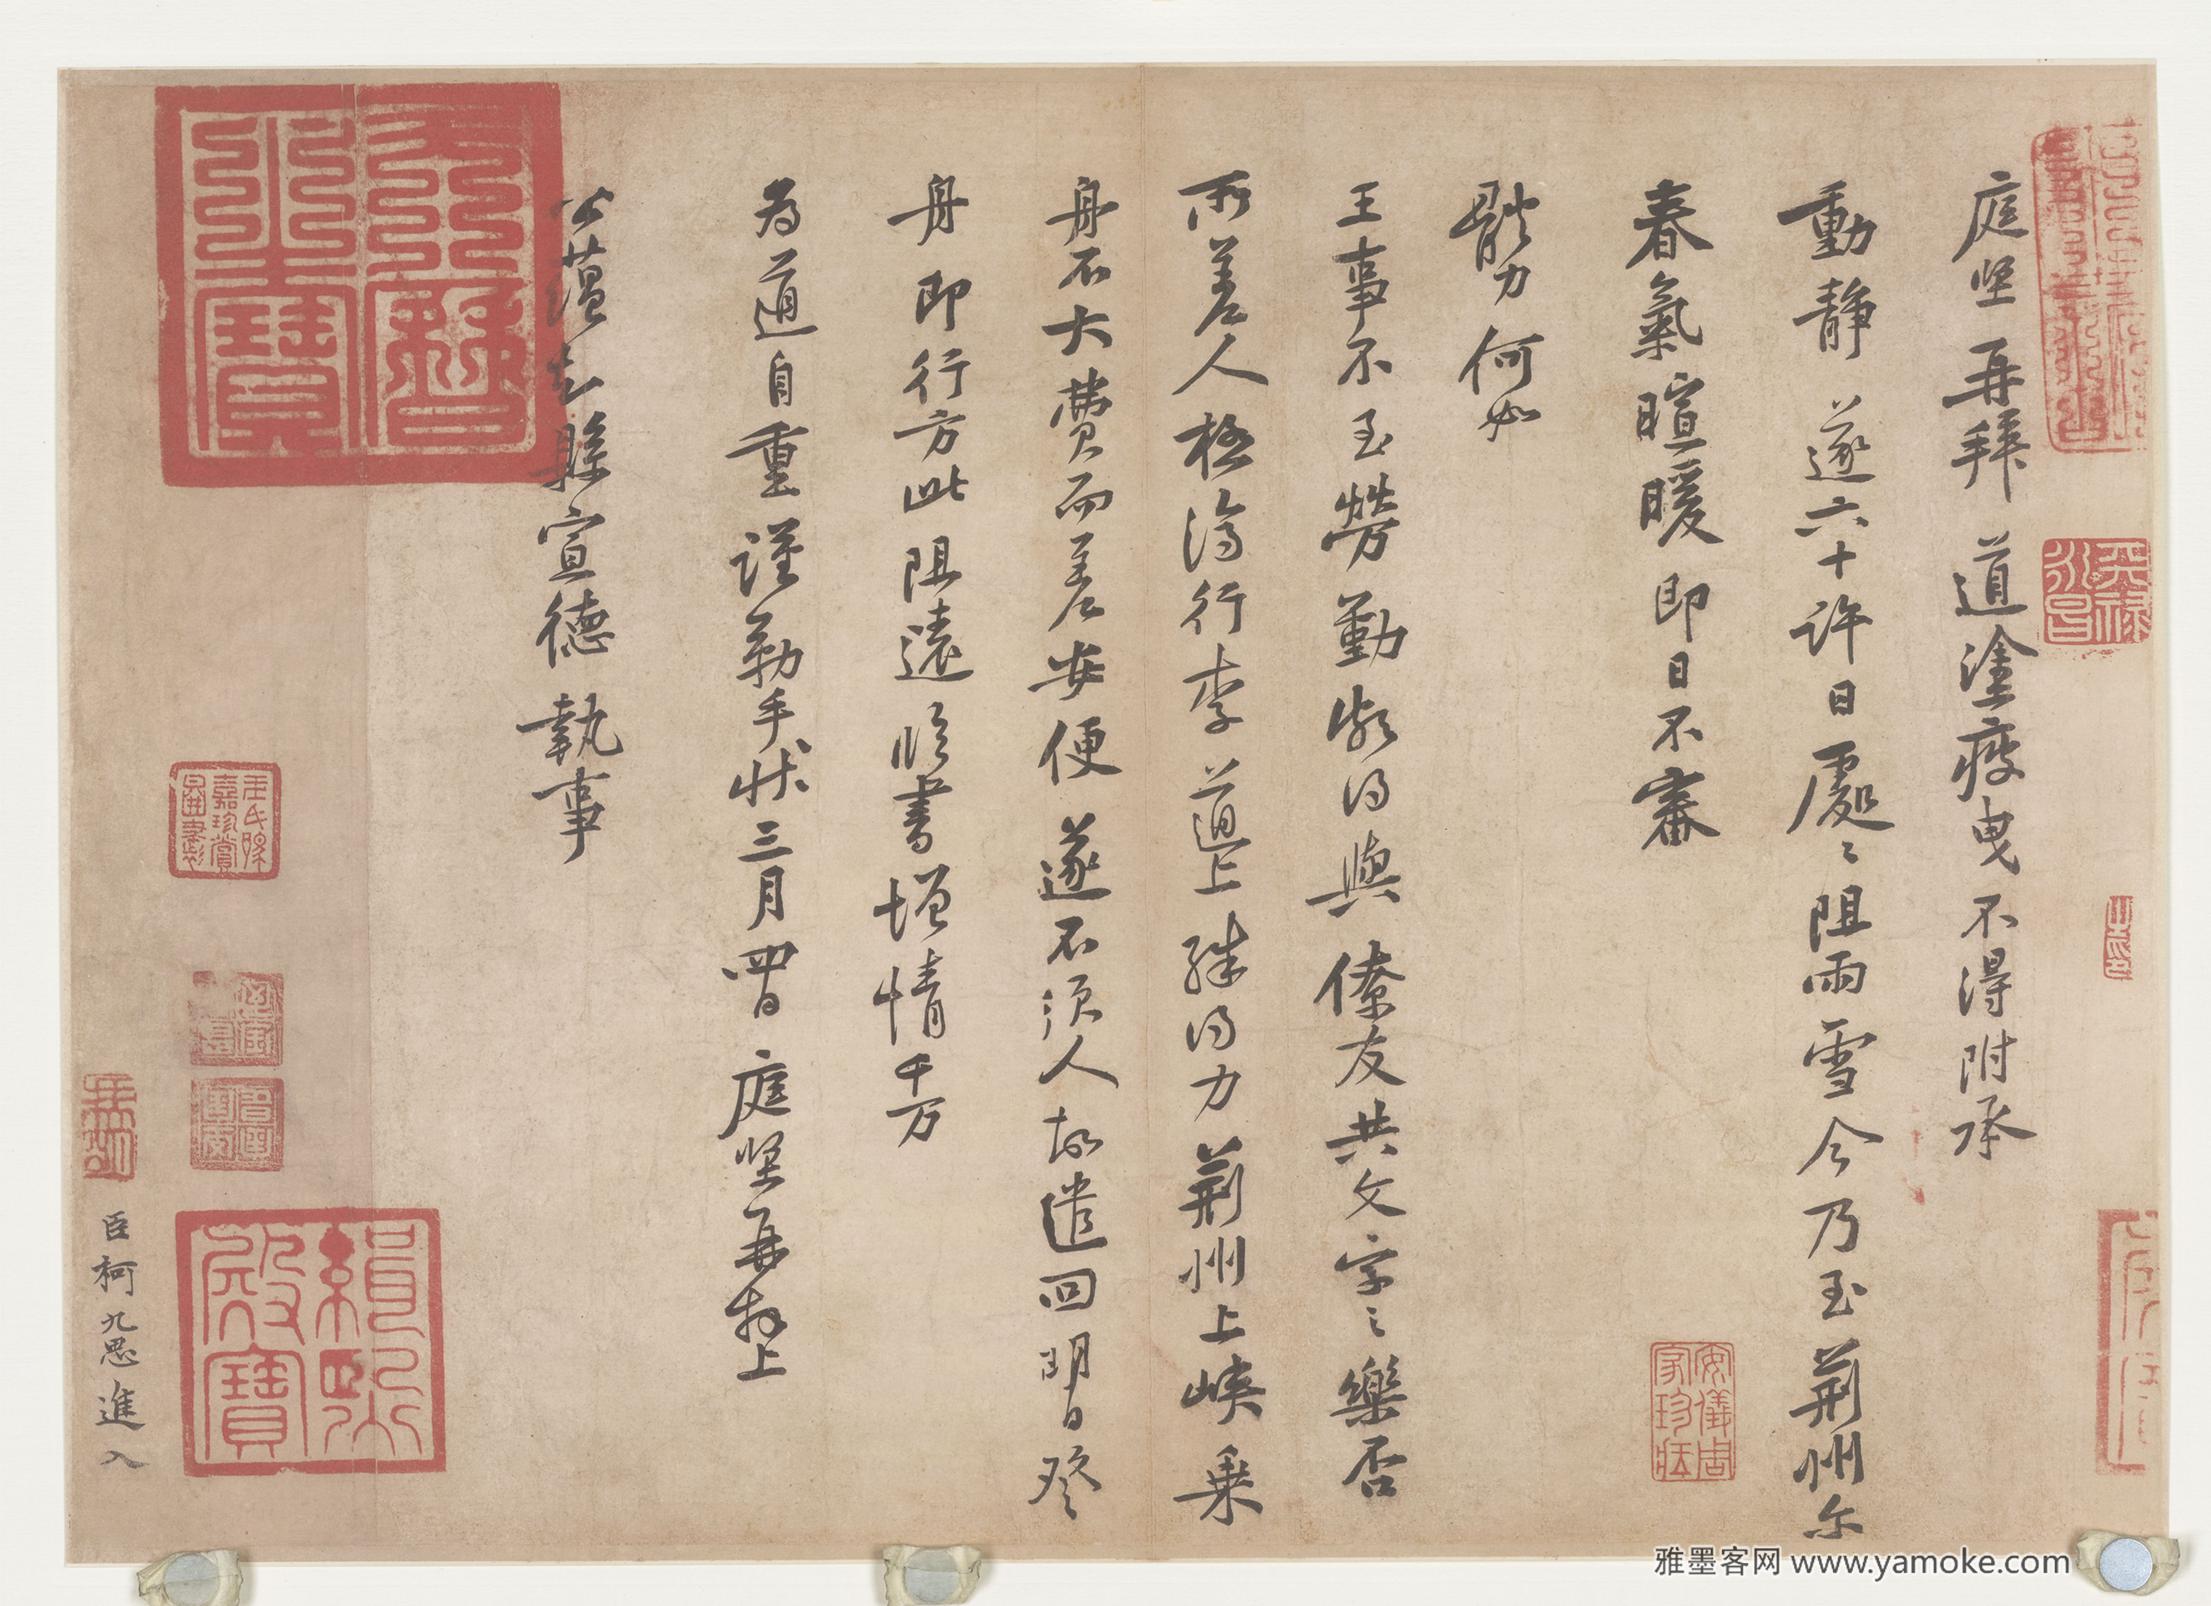 庭堅再拜道塗疲曳不得附承
動静遂六十許日處〻阻雨雪今乃至荆州尔
春氣暄暖即日不審
體力何如
王事不至勞勤嘗得與僚友共文字之樂否
所差人極濟行李道上殊得力荆州上峽乘
舟不大費而差安便遂不須人故遣回明日登
舟即行方此阻遠臨書增情千万
為道自重謹勒手狀三月四日庭堅再拜上
公藴知縣宣德執事
臣柯九思進入
天曆之寶
緝熙殿寶
安儀周家珍藏
雅墨客网 www.yamoke.com